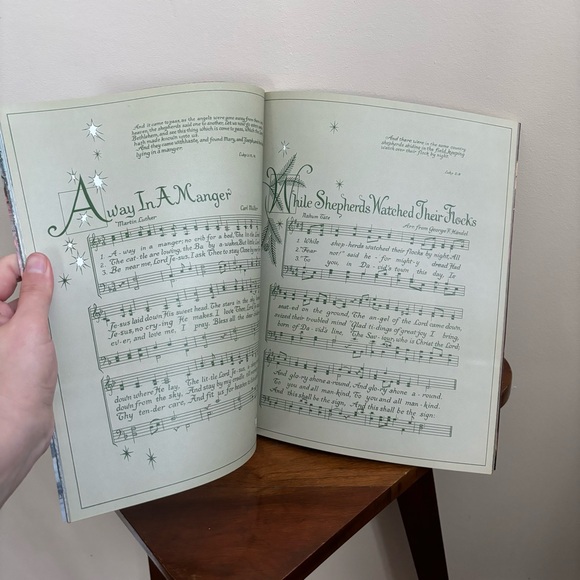 And it came to pass, as the angels were gone away from them into
heaven, the shepherds said one to another, Let us now go even unto
Bethlehem, and see this thing which is come to pass, which the Lord
hath made known unto us.
And they came with haste, and found Mary, and Joseph, and the babe
lying in a manger.
Away In A Manger
Martin Luther
Carl
1. A - way in a manger, no crib for a bed, The lit-tle
2. The cat-tle are lowing, the Ba - by a-wakes, But lit-tle
3. Be near me, Lord Je-sus, I ask Thee to stay Close by
Je-sus laid down His sweet head. The stars in the sky
Je-sus, no cry-ing He makes. I love Thee, Lord
ev-er, and love me, I pray. Bless all the dear
down where He lay, The lit-tle Lord Je-sus, a-
down from the sky, And stay by my cradle
Thy ten-der care, And fit us for heaven
And there were in the same country
shepherds abiding in the field, keeping
watch over their flock by night.
Luke 2:8
While Shepherds Watched Their Flocks
Nahum Tate
Arr. from George F. Handel
1. While shep-herds watched their flocks by night, All
2. "Fear not!" said he - for might-y dread Had
3. "To you, in Da - vid's town this day, Is
seat-ed on the ground, The an-gel of the Lord came down,
seized their troubled mind "Glad ti-dings of great joy I bring,
born of Da-vid's line, The Sav-iour who is Christ the Lord;
And glo-ry shone a-round, And glo-ry shone a-round.
To you and all man-kind, To you and all man-kind.
And this shall be the sign, And this shall be the sign: